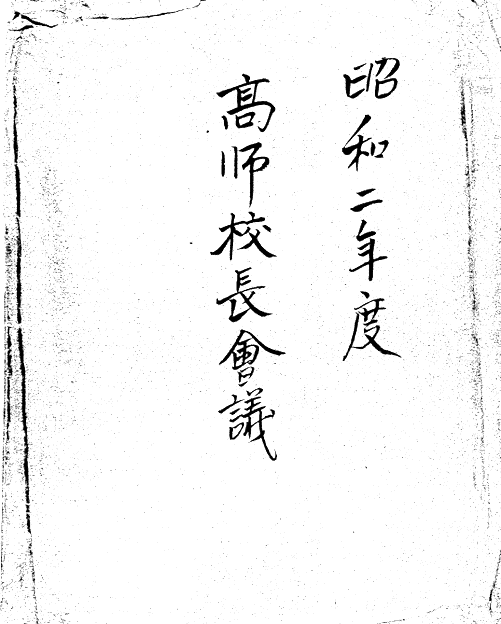 昭和二年度
高师校長會議